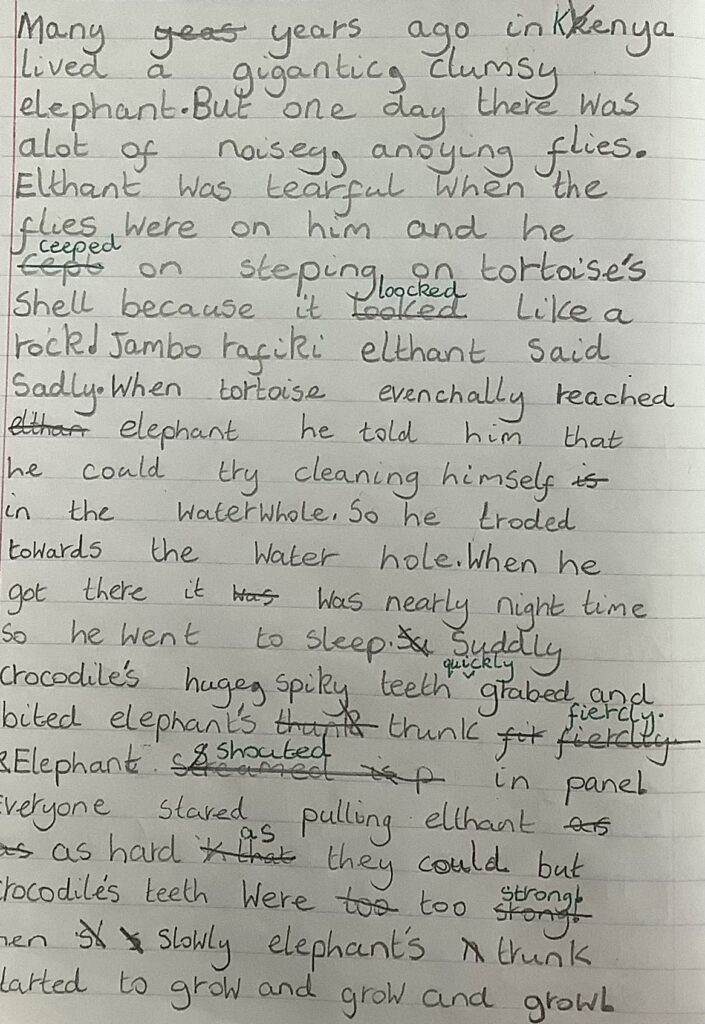 Many yeas years ago in Kkenya
lived a gigantic, clumsy
elephant. But one day there was
alot of noisey, anoying flies.
Elthant was tearful when the
flies were on him and he
ceeped
cept on steping on tortoise's
loocked
Shell because it looked like a
rock! Jambo rafiki elthant said
Sadly. When tortoise evenchally reached
elthan elephant he told him that
he could try cleaning himself is
in the waterwhole. So he troded
towards the water hole. When he
got there it was was nearly night time
so he went to sleep. Su Suddly
quickly
crocodile's huge, spiky teeth grabed and
fiercly.
bited elephant's thunk trunk fir fierclly
& shouted
Elephant screamed is p in panel
everyone stared pulling elthant as
as
as as hard that they could but
strong!
rocodile's teeth were too too stong!
hen sl slowly elephant's trunk
tarted to grow and grow and grow!